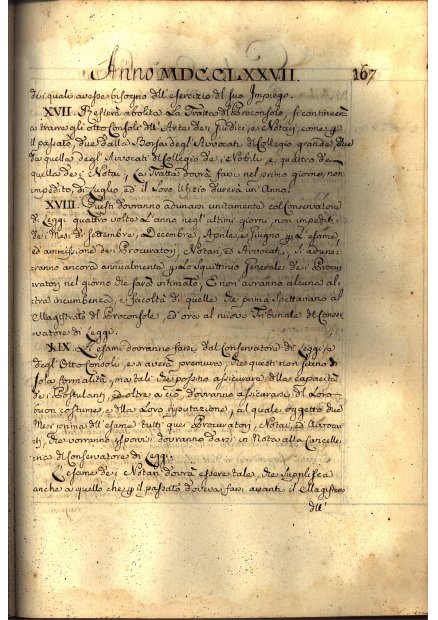 Anno MDCCLXXVII. 167
dei quali avesse bisogno dell' esercizio del suo Impiego.
XVII. Resterà abolita La Tratta del Proconsolo, si continuerà
a trarre gli otto Consoli dell' Arte dei Giudici, e Notai, come p
il passato, due dalla Borsa degl' Avvocati di Collegio grande, due
da quella degl' Avvocati di Collegio de Nobili, e quattro da
quella dei Notai, e La Tratta dovrà farsi nel primo giorno, non
impedito, di Luglio, ed il Loro Ufizio durerà un' Anno.
XVIII. Questi dovranno adunarsi unitamente col Conservatore
di Leggi quattro volte L'anno negl' ultimi giorni, non impediti
dei Mesi di Settembre, Decembre, Aprile, e Giugno p L'esame,
ed ammissione dei Procuratori, Notai, ed Avvocati, si adune-
ranno ancora annualmente p Lo Squittinio Generale dei Procu-
ratori nel giorno che sarà intimato, E non avranno alcuna al-
tra incumbenza, e facoltà di quelle che prima Spettavano al
Magistrato del Proconsole, ed ora al nuovo Tribunale de Conser-
vatore di Leggi.
XIX. Gl' esami dovranno farsi dal Conservatore di Leggi, e
dagl' Otto Consoli, e si averà premura, che questi non siano di
sola formalità, ma tali che possino assicurare della capacità
dei Postulanti, ed oltre a ciò, dovranno assicurarsi del Loro
buon costume, e della Loro reputazione, al quale oggetto due
Mesi prima dell' esame tutti quei Procuratori, Notai, ed Avvoca-
ti, che vorranno esporvisi dovranno darsi in Nota alla Cancelle-
ria di Conservatore di Leggi.
L'esame dei Notai dovrà essere tale, che supplisca
anche a quello che p il passato doveva farsi avanti il Magistrato
dell'